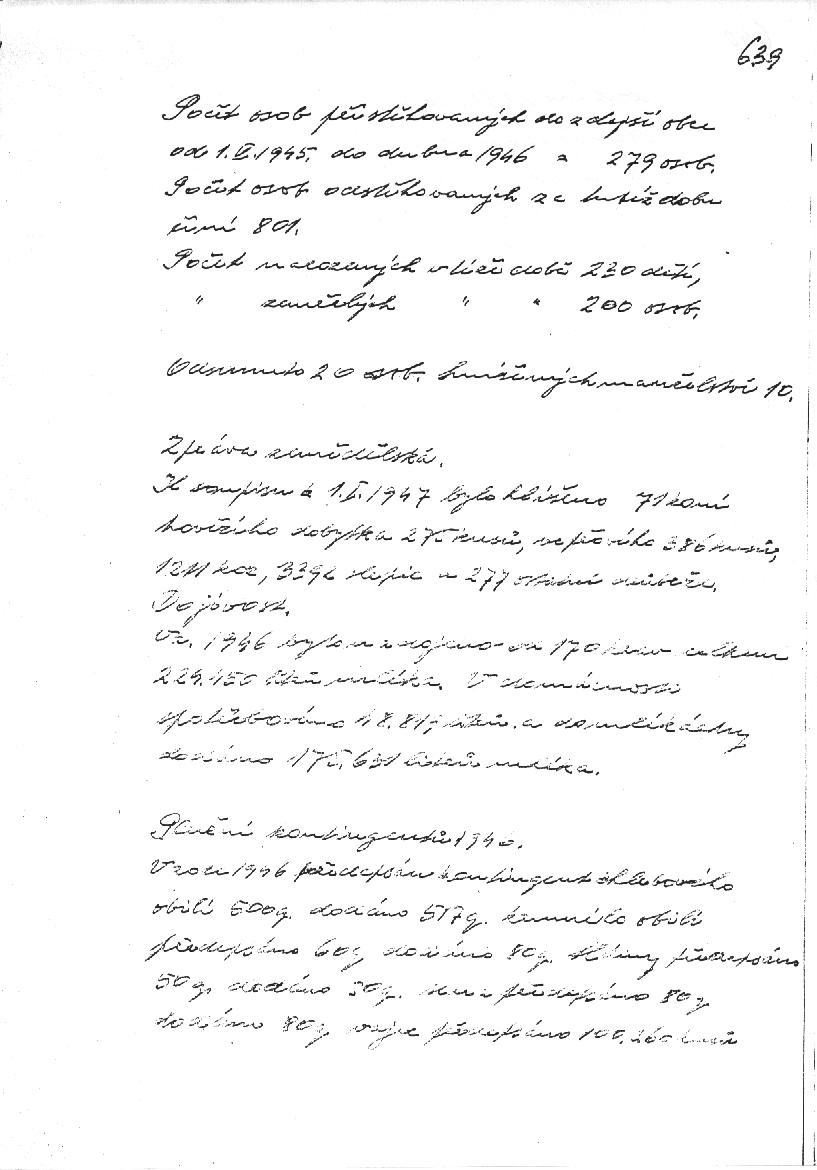 639
Počet osob přistěhovaných do zdejší obce
od 1.V.1945. do dubna 1946 a 279 osob.
Počet osob odstěhovaných za tutéž dobu
činí 801.
Počet narozených v téže době 230 dětí,
" zemřelých " " 200 osob.
Oddáno 20 osob. manželství 10.
Zpráva zemědělská.
K soupisu k 1.I.1947 bylo hlášeno 71 koní
hovězího dobytka 275 kusů, vepřového 386 kusů,
1211 koz, 3392 slepic a 277 ostatní drůbeže.
Dojivost.
V r. 1946 bylo nadojeno od 170 krav celkem
224.450 litrů mléka. V domácnosti
spotřebováno 48.819 litrů. a do mlékárny
dodáno 175.631 litrů mléka.
Plnění kontingentů 1946.
V roce 1946 předepsán kontingent chlebového
obilí 500q. dodáno 517q. krmného obilí
předepsáno 60q dodáno 80q. předepsáno
50q, dodáno 30q. předepsáno 80q
dodáno 80q vajec předepsáno 100.260 kusů